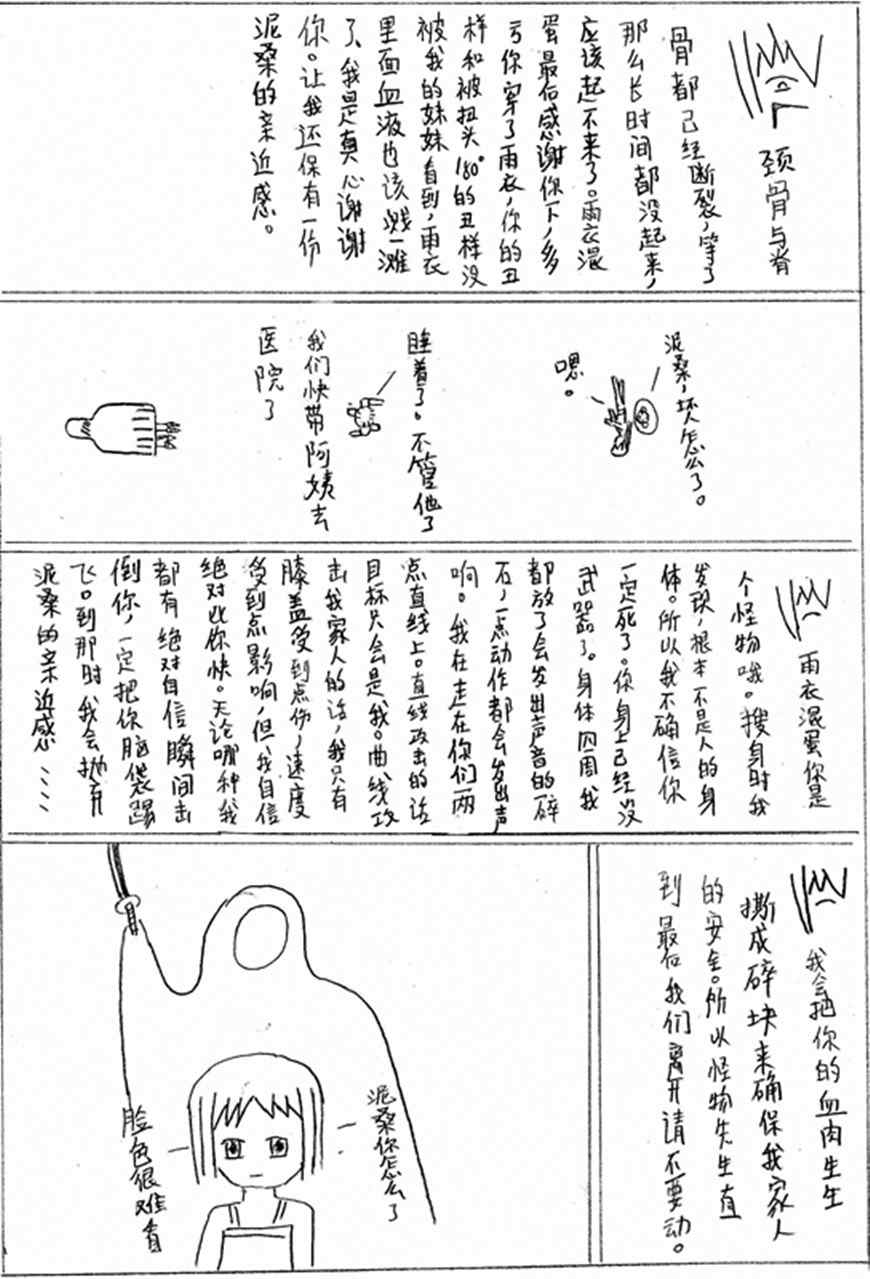 颈骨与脊
骨都已经断裂，等了
那么长时间都没起来，
应该起不来了。雨衣混
蛋最后感谢你下，多
亏你穿了雨衣，你的丑
样和被扭头180°的丑样没
被我的妹妹看到，雨衣
里面血液也该溅一滩
了、我是真心谢谢
你。让我还保有一份
泥桑的亲近感。
泥桑，坏怎么了。
嗯。
睡着了。不管他了
我们快带阿姨去
医院了
雨衣混蛋你是
个怪物哦。搜身时我
发现，根本不是人的身
体。所以我不确信你
一定死了。你身上已经没
武器了。身体四周我
都放了会发出声音的碎
石，一点动作都会发出声
响。我在走在你们两
点直线上。直线攻击的话
目标只会是我。曲线攻
击我家人的话，我只有
膝盖受到点伤，速度
受到点影响，但我自信
绝对比你快。无论哪种我
都有绝对自信瞬间击
倒你，一定把你脑袋踢
飞。到那时我会抛弃
泥桑的亲近感、、、
我会把你的血肉生生
撕成碎块来确保我家人
的安全。所以怪物先生直
到最后我们离开请不要动。
泥桑你怎么了
脸色很难看